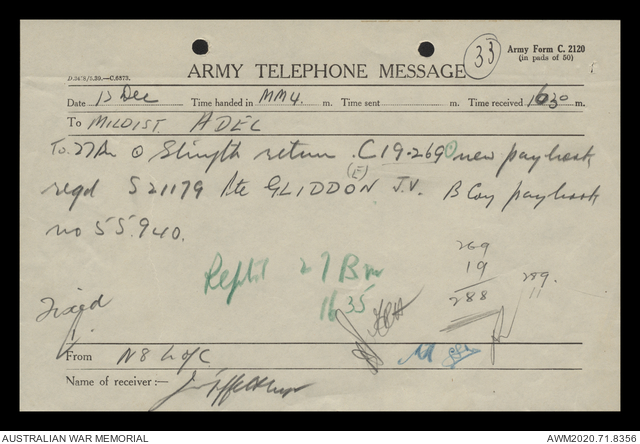 33
Army Form C. 2120
(in pads of 50)
D.3478/5.39.—C.6873.
ARMY TELEPHONE MESSAGE
Date 13 Dec Time handed in MM4 m. Time sent m. Time received 1630 m.
To MILDIST ADEL
To. 27 Bn Strength return C19.269 new paybook
(E)
reqd S21179 Pte GLIDDON J.V. B Coy paybook
no 55940.
269
19
288
289
11
27 Bn
1635
Fixed
From N8 L of C
Name of receiver :—
AUSTRALIAN WAR MEMORIAL
AWM2020.71.8356